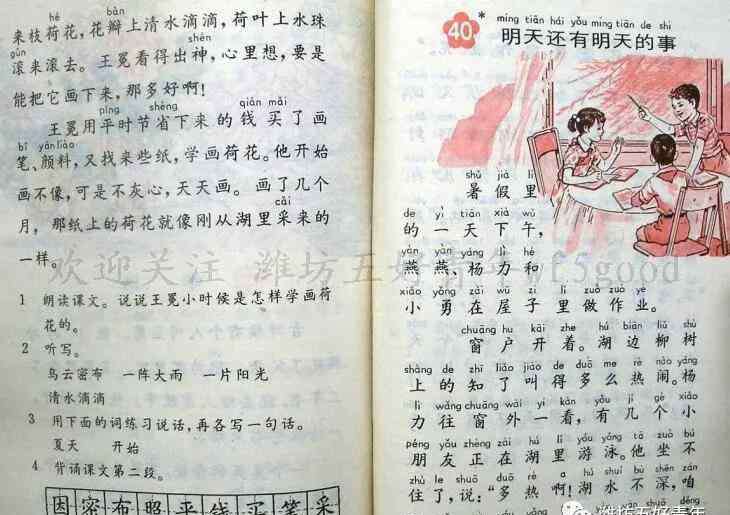 hé bàn
来枝荷花，花瓣上清水滴滴，荷叶上水珠
gǔn shén
滚来滚去。王冕看得出神，心里想，要是
能把它画下来，那多好啊！
píng shěng qián mǎi
王冕用平时节省下来的钱买了画
bǐ yánliào
笔、颜料，又找来些纸，学画荷花。他开始
画不像，可是不灰心，天天画。画了几个
cǎi
月，那纸上的荷花就像刚从湖里采来的
一样。
1 朗读课文。说说王冕小时候是怎样学画荷
花的。
2 听写。
乌云密布 一阵大雨 一片阳光
清水滴滴
3 用下面的词练习说话，再各写一句话。
夏天 开始
4 背诵课文第二段。
因密布照平线买笔采
40 *
míng tiān hái yǒu míng tiān de shì
明天还有明天的事
shǔ jià lǐ
暑假里
de yì tiān xià wǔ
的一天下午，
yàn yàn yáng lì hé
燕燕、杨力和
xiǎo yǒng zài wū zi lǐ zuò zuò yè
小勇在屋子里做作业。
chuāng hu kāi zhe hú biān liǔ shù
窗户开着。湖边柳树
shàng de zhī liǎo jiào de duō me rè nào yáng
上的知了叫得多么热闹。杨
lì wǎng chuāng wài yí kàn yǒu jǐ gè xiǎo
力往窗外一看，有几个小
péng yǒu zhèng zài hú lǐ yóu yǒng tā zuò bú
朋友正在湖里游泳。他坐不
zhù le shuō duō rè a hú shuǐ bù shēn zán
住了，说：“多热啊！湖水不深，咱
欢迎关注 潍坊五好青年 wf5good
潍坊五好青年